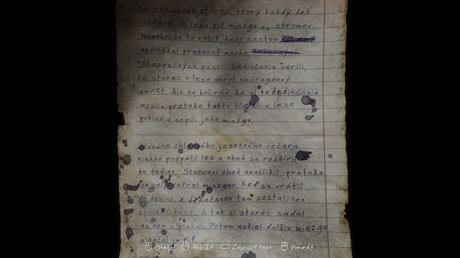 Bol raz jeden starec, ktorý každý deň
chodieval do lesa piť miazgu zo stromov.
Nemohlby to robiť, keby cestou
nedokázal prekonať mnoho
nebezpečných pascí. Dedinčania verili,
že starec v lese ukryl smaragdový
amulet. Ale on bol rád, že si to dedinčania
myslia pretože takto hľadali v lese
poklad a nepili jeho miazgu.
Jedného chladného jesenného večera
niekto podpálil les a oheň sa rozšíril
do dediny. Starcovi oheň neublížil, pretože
sa celý natrel miazgou. Keď sa vrátil
do dediny, z dedinčanov tam zostali len
kosti. A tak si starec sadol
na zem a plakal. Potom našiel ďalšiu miazgu
a začal ju piť.
Otáčať Priblížiť Zobraziť text Potvrdiť